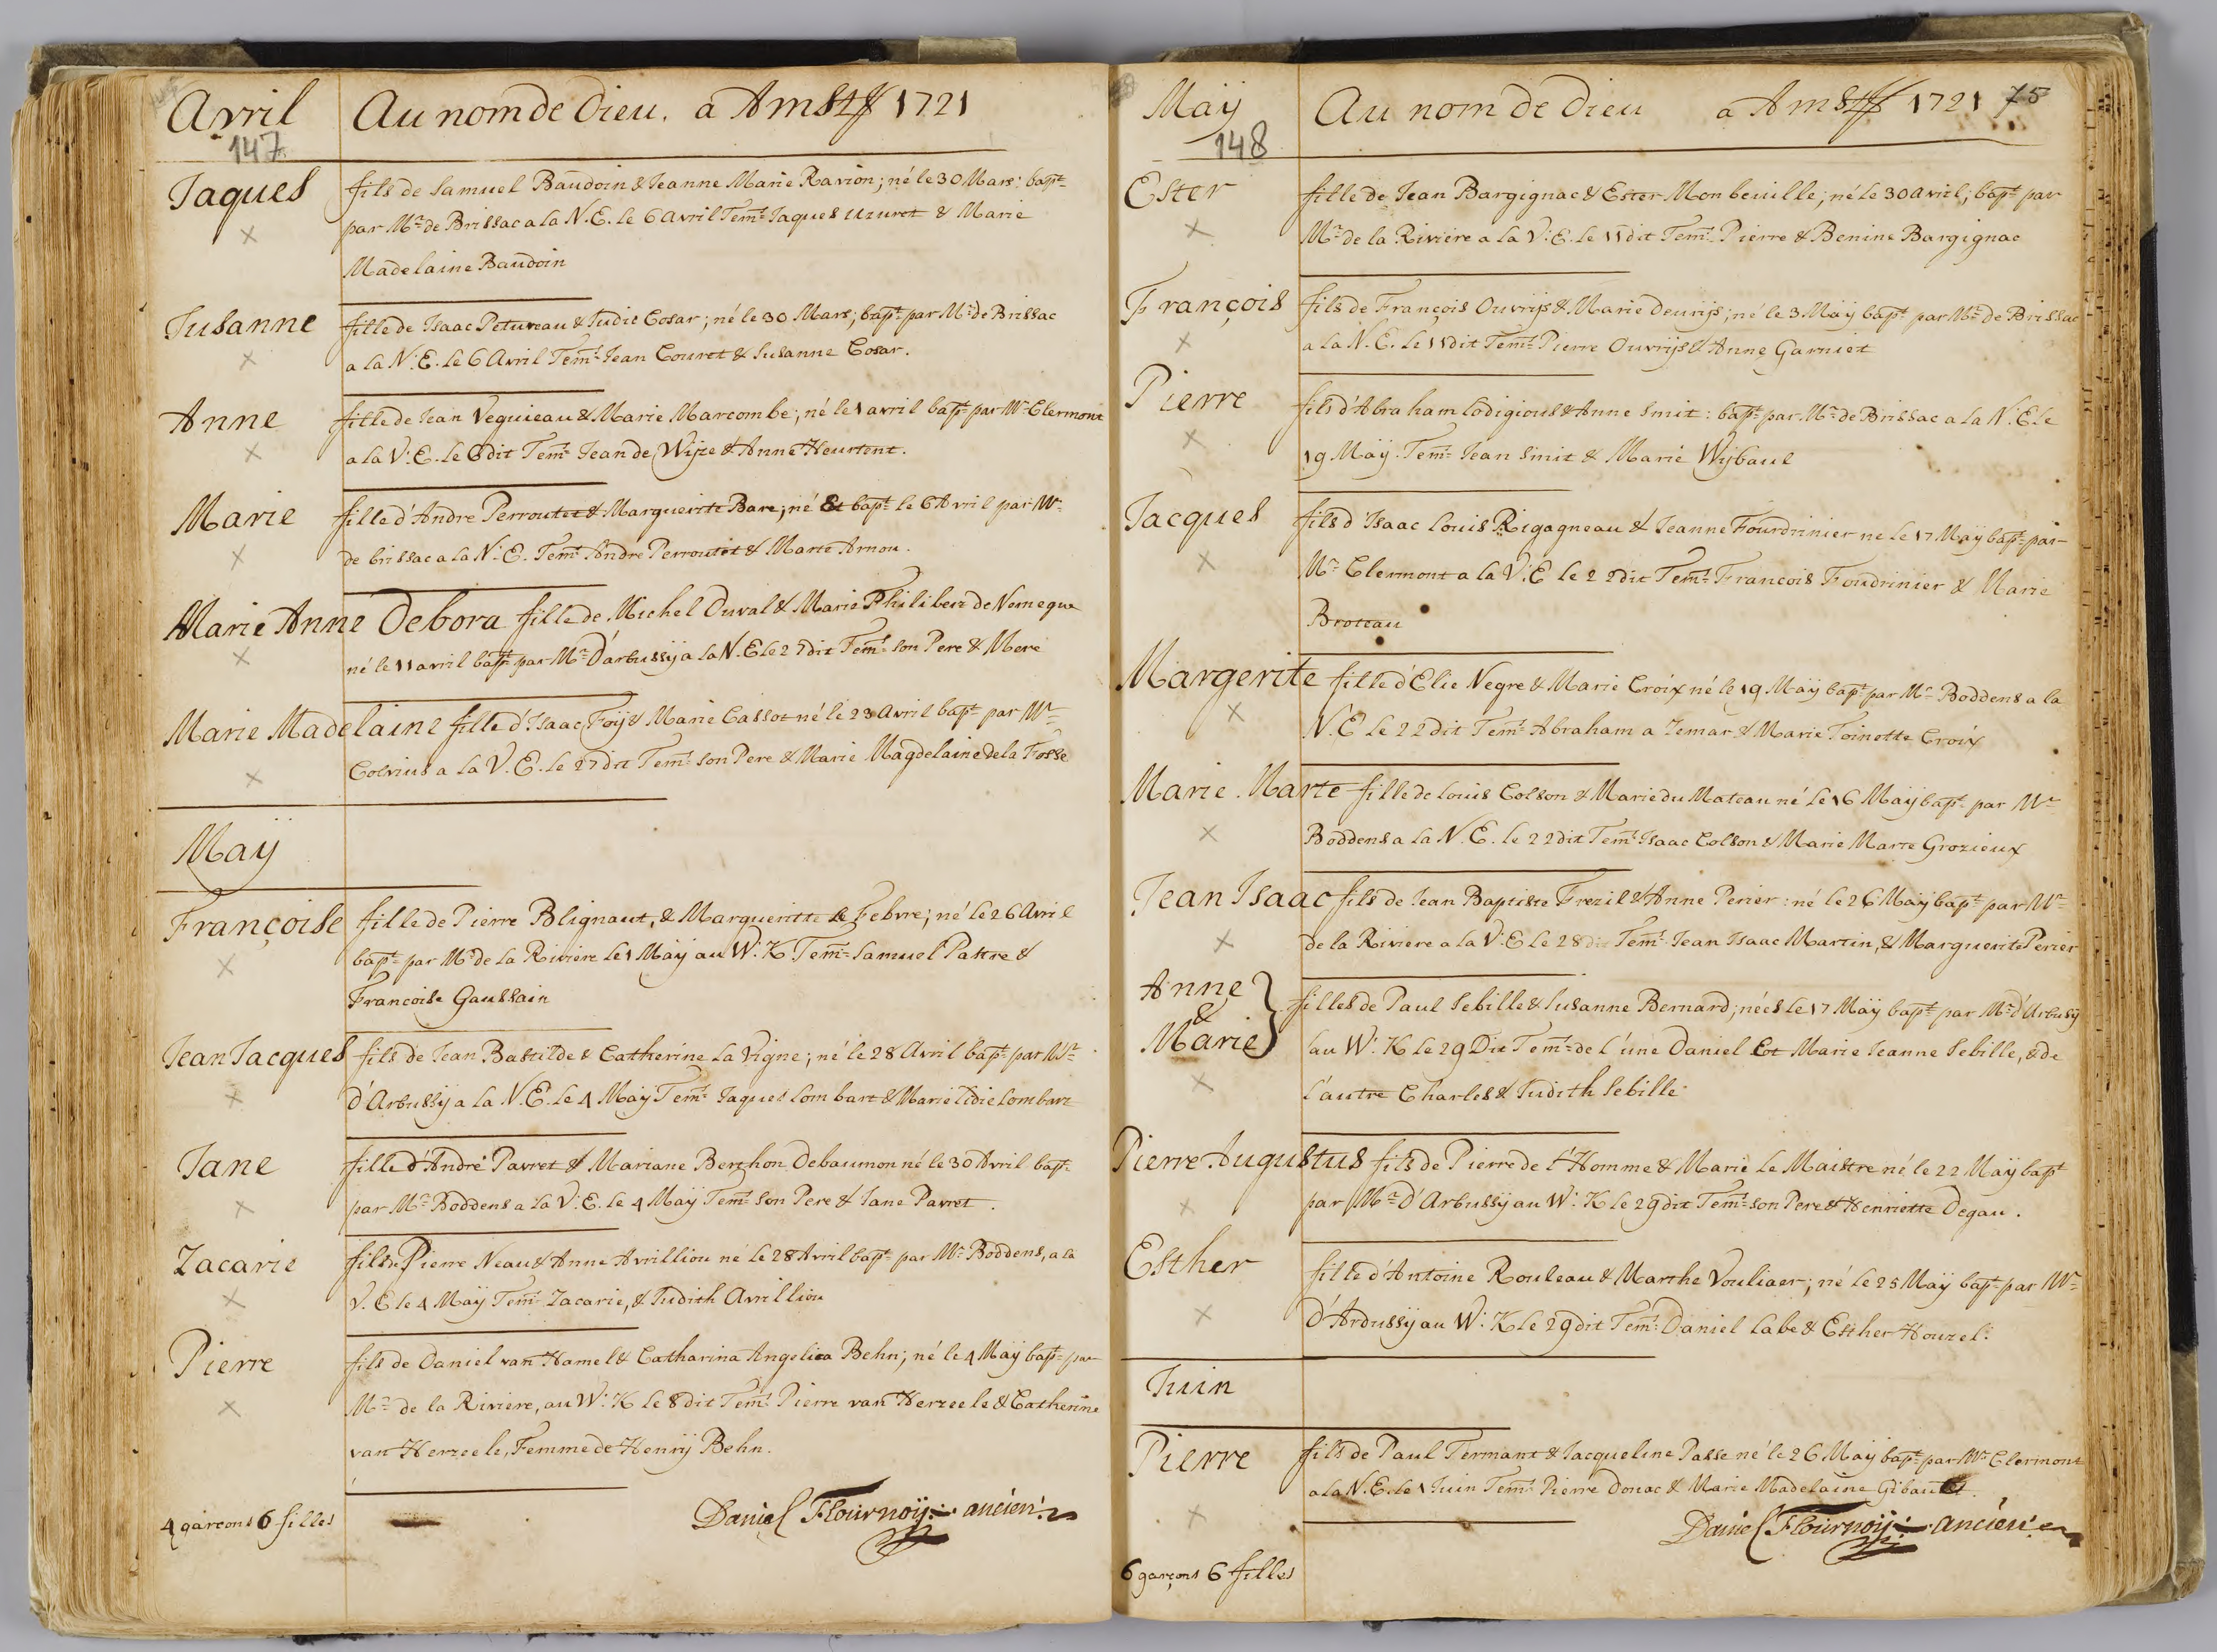 Avril Au nom de Dieu. a Amst 1721
147
Jaques fils de Samuel Baudoin & Jeanne Marie Ravion; né le 30 Mars: bapt
par Mr de Brissac a la N.E. le 6 avril Tem: Jaques Uzuret & Marie
Madelaine Baudoin
Susanne fille de Isaac Petureau & Judit Cosar; né le 30 Mars; bapt par Mr de Brissac
a la N.E. le 6 Avril Tem: Jean Couret & Susanne Cosar.
Anne fille de Jean Veguieau & Marie Marcombe; né le 1 avril bapt par Mr Clermont
a la V.E. le 6 dit Tem: Jean de Wijze & Anne Heurtent.
Marie fille d'Andre Perroutet & Margueritte Bare; né & bapt le 6 Avril par Mr
de brissac a la N.E. Tem: Andre Perroutet & Marte Arnou.
Marie Anne Debora fille de Michel Duval & Marie Philibert de Nemeque
né le 11 avril bapt par Mr D'arbussÿ a la N.E le 27 dit Tem: son Pere & Mere
Marie Madelaine fille d'Isaac Foÿ & Marie Cassot né le 23 avril bapt par Mr
Colvius a la V.E. le 27 dit Tem: son Pere & Marie Magdelaine de la Fosse
Maÿ
Françoise fille de Pierre Blignaut, & Margueritte le Febvre; né le 26 Avril
bapt par Mr de la Riviere le 1 Maÿ au W.K. Tem: Samuel Pattre &
Francoise Gaussain
Jean Jacques fils de Jean Bastilde & Catherine La Vigne; né le 28 Avril bapt par Mr
d'Arbussÿ a la N.E. le 4 Maÿ Tem: Jaques Lombart & Marie Lidie Lombart
Jane fille d'André Pavret & Mariane Berthon Debaumon né le 30 Avril bapt
par Mr Boddens a la V.E. le 4 Maÿ Tem: son Pere & Jane Pavret.
Zacarie fils de Pierre Neau & Anne Avrilliou né le 28 Avril bapt par Mr Boddens, a la
V.E le 4 Maÿ Tem: Zacarie, & Judith Avrilliou
Pierre fils de Daniel van Hamel & Catharina Angelica Behn; né le 4 Maÿ bapt par
Mr de la Riviere, au W.K le 8 dit Tem: Pierre van Herzeele & Catherine
van Herzeele, Femme de Henrÿ Behn.
4 garcons 6 filles Daniel Flournoÿ: ancien:
Maÿ Au nom de Dieu a Amst 1721 75
148
Ester fille de Jean Bargignac & Ester Monbeuille; né le 30 avril; bapt par
Mr de la Riviere a la V.E. le 11 dit Tem: Pierre & Benine Bargignac
François fils de François Ouvrijs & Marie Deurijs; né le 3 Maÿ bapt par Mr de Brissac
a la N.E. le 11 dit Tem: Pierre Ouvrijs & Anne Garniet
Pierre fils d'Abraham Lodigious & Anne Smit: bapt par Mr de Brissac a la N.E. le
19 Maÿ. Tem: Jean Smit & Marie Wijbaul
Jacques fils d'Isaac Louis Rigagneau & Jeanne Fourdrinier ne le 17 Maÿ bapt par
Mr Clermont a la V.E le 22 dit Tem: Francois Foudrinier & Marie
Broteau
Margerite fille d'Elie Negre & Marie Croix né le 19 Maÿ bapt par Mr Boddens a la
N.E Le 22 dit Tem: Abraham a Zemar & Marie Toinette Croix
Marie Marte fille de Louis Colson & Marie du Mateau né le 16 Maÿ bapt par Mr
Boddens a la N.E. le 22 dit Tem: Isaac Colson & Marie Marte Grozieux
Jean Isaac fils de Jean Baptiste Frezil & Anne Perier: né le 26 Maÿ bapt par Mr
de la Riviere a la V.E le 28 dit Tem: Jean Isaac Martin, & Marguerite Perier
Anne
&
Marie
filles de Paul Sebille & Susanne Bernard; nées le 17 Maÿ bapt par Mr d'Arbusÿ
au W.K le 29 Dit Tem: de l'une Daniel Et Marie Jeanne Sebille, & de
l'autre Charles & Judith Sebille
Pierre Augustus fils de Pierre de l'Homme & Marie Le Maistre né le 22 Maÿ bapt
par Mr D'Arbussÿ au W.K le 29 dit Tem: son Pere & Henriette Degau.
Esther fille d'Antoine Rouleau & Marthe Vouliaer; né le 25 Maÿ bapt par Mr
D'Ardussÿ au W.K le 29 dit Tem: Daniel Labe & Esther Houzel.
Juin
Pierre fils de Paul Termant & Jacqueline Passe né le 26 Maÿ bapt par Mr Clermont
a la N.E. le 1 Juin Tem: Pierre Donac & Marie Madelaine
Daniel Flournoÿ: ancien
6 garçons 6 filles